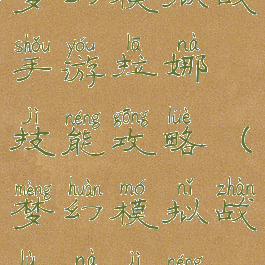 梦幻模拟战
shǒu yóu lā nà
手游拉娜
jì néng gōng lüè
技能攻略（
mèng huàn mó nǐ zhàn
梦幻模拟战
nà jì néng